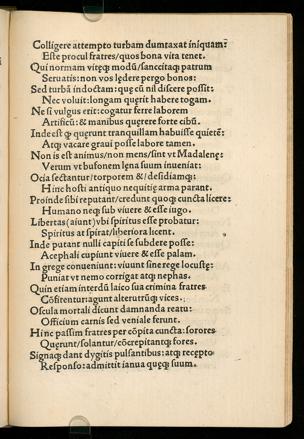 Colligere attempto turbam dumtaxat iniquam:
Este procul fratres/quos bona vita tenet.
Qui normam vitęq; modũ/sanccitaq; patrum
Seruatis: non vos lędere pergo bonos:
Sed turbã indoctam: que cũ nil discere possit:
Nec voluit: longam quęrit habere togam.
Ne si vulgus erit: cogatur ferre laborem
Artificũ: & manibus quęrere forte cibũ.
Inde est q; quęrunt tranquillam habuisse quietẽ:
Atq; vacare graui posse labore tamen.
Non is est animus/non mens/sint vt Madalenę:
Verum vt busonem lęna suum inueniat:
Ocia sectantur/torporem &/desidiamq;:
Hinc hosti antiquo nequitię arma parant.
Proinde sibi reputant/credunt quoq; cuncta licere:
Humano neq; sub viuere & esse iugo.
Libertas (aiunt) vbi spiritus esse probatur:
Spiritus at spirat/liberiora licent.
Inde putant nulli capiti se subdere posse:
Acephali cupiunt viuere & esse palam.
In grege conueniunt: viuunt sine rege locustę:
Puniat vt nemo corrigat atq; nephas.
Quin etiam interdũ laico sua crimina fratres
Cõfitentur: agunt alterutrũq; vices.
Oscula mortali dicunt damnanda reatu:
Officium carnis sed veniale ferunt.
Hinc passim fratres per cõpita cuncta: sorores
Quęrunt/solantur/cõcrepitantq; fores.
Signaq; dant dygitis pulsantibus: atq; recepto
Responso: admittit ianua quęq; suum.